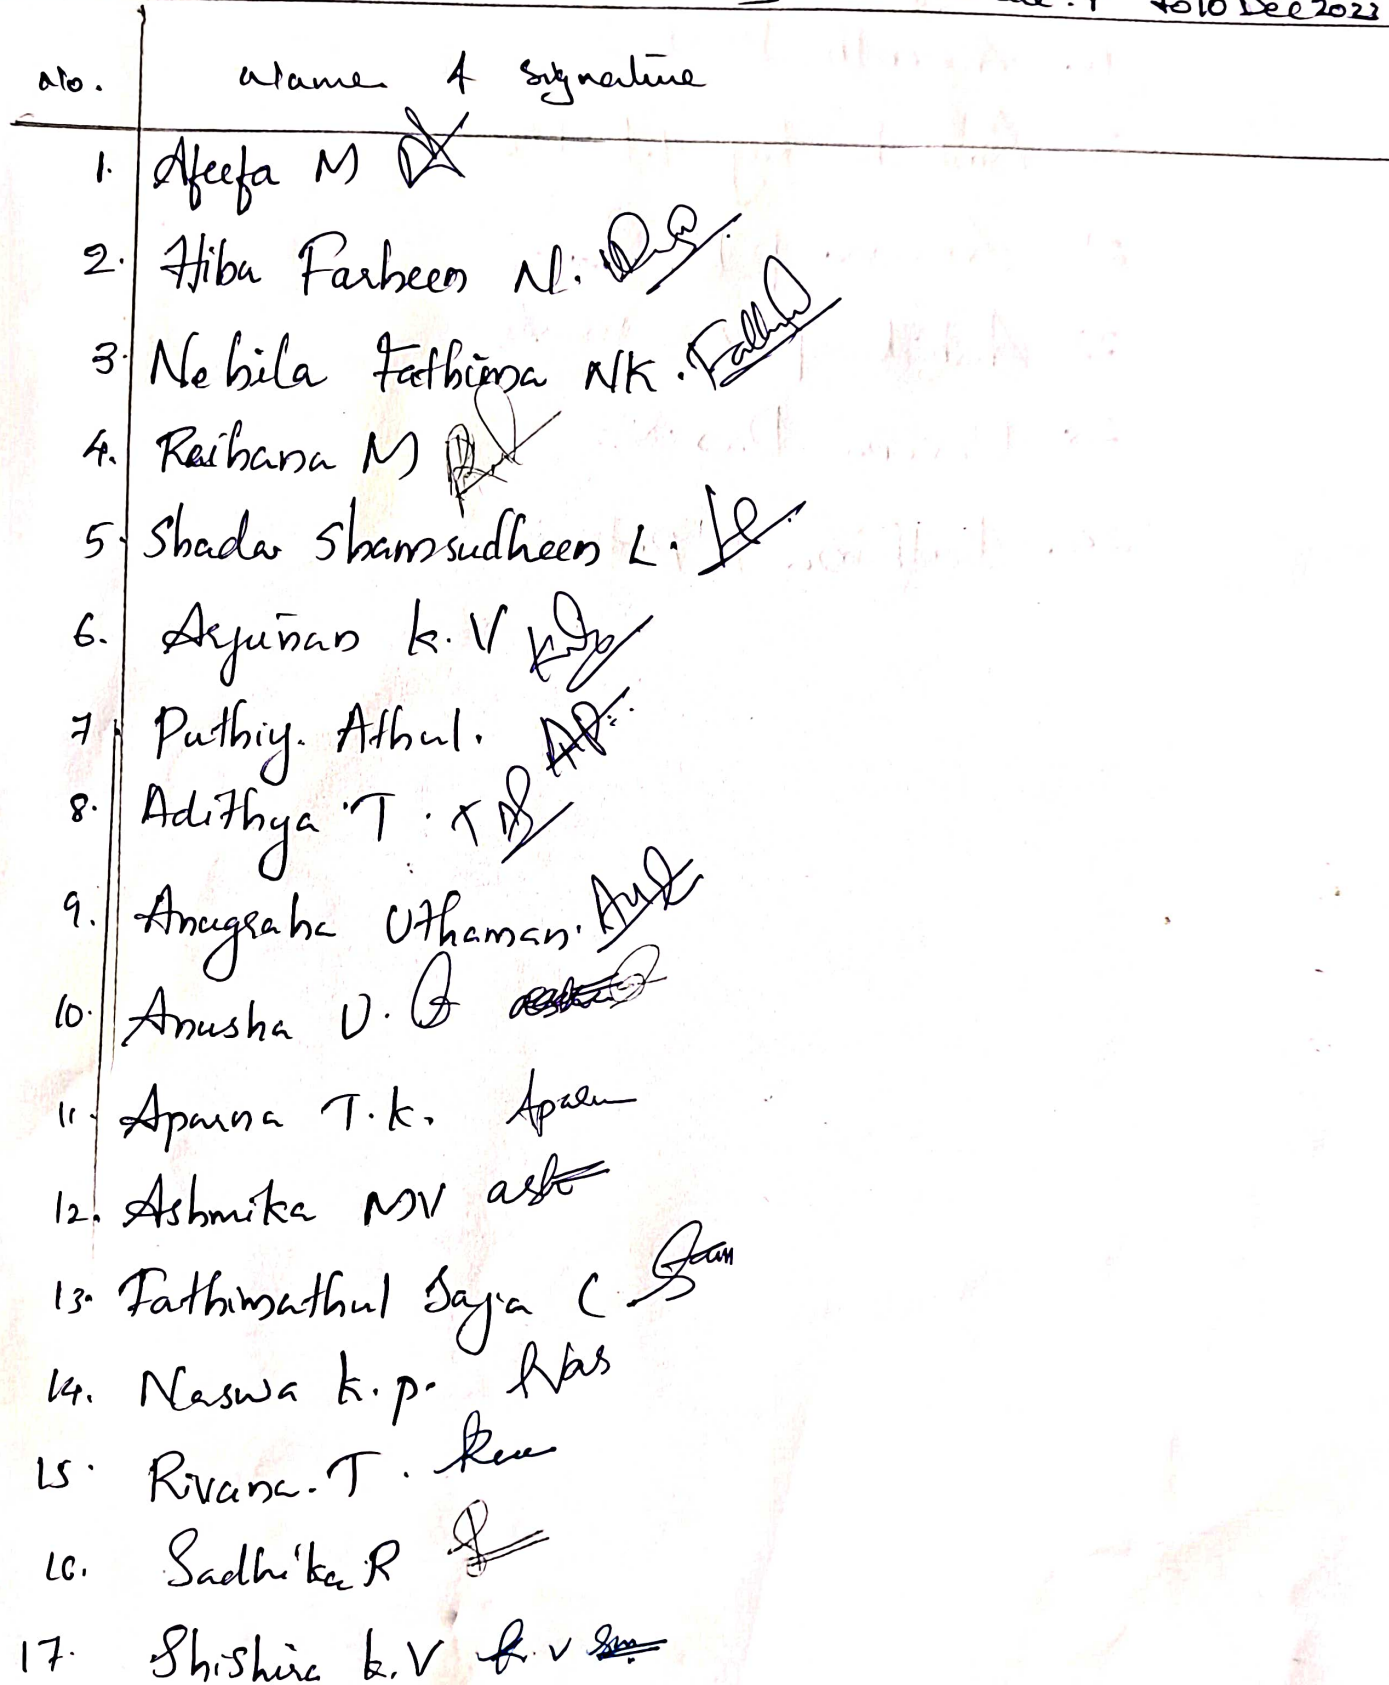 to 10 Dec 2023
No. Name & Signature
1. Afeefa M
2. Hiba Farheen N.
3. Nebila Fathima NK.
4. Raihana M
5. Shada Shamsudheen L.
6. Arjunan k.V
7. Puthiy. Athul. AP
8. Adithya T.
9. Anugraha Uthaman.
10. Anusha U.
11. Aparna T.k.
12. Ashmika MV
13. Fathimathul Saja C
14. Naswa k.p. Nas
15. Rivana.T.
16. Sadhika R
17. Shishira k.V k.v